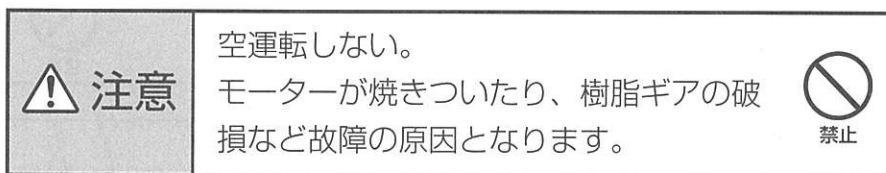 注意
空運転しない。
モーターが焼きついたり、樹脂ギアの破
損など故障の原因となります。
禁止